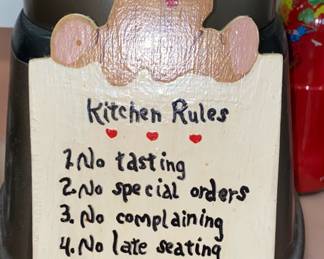 Kitchen Rules
1. No tasting
2. No special orders
3. No complaining
4. No late seating